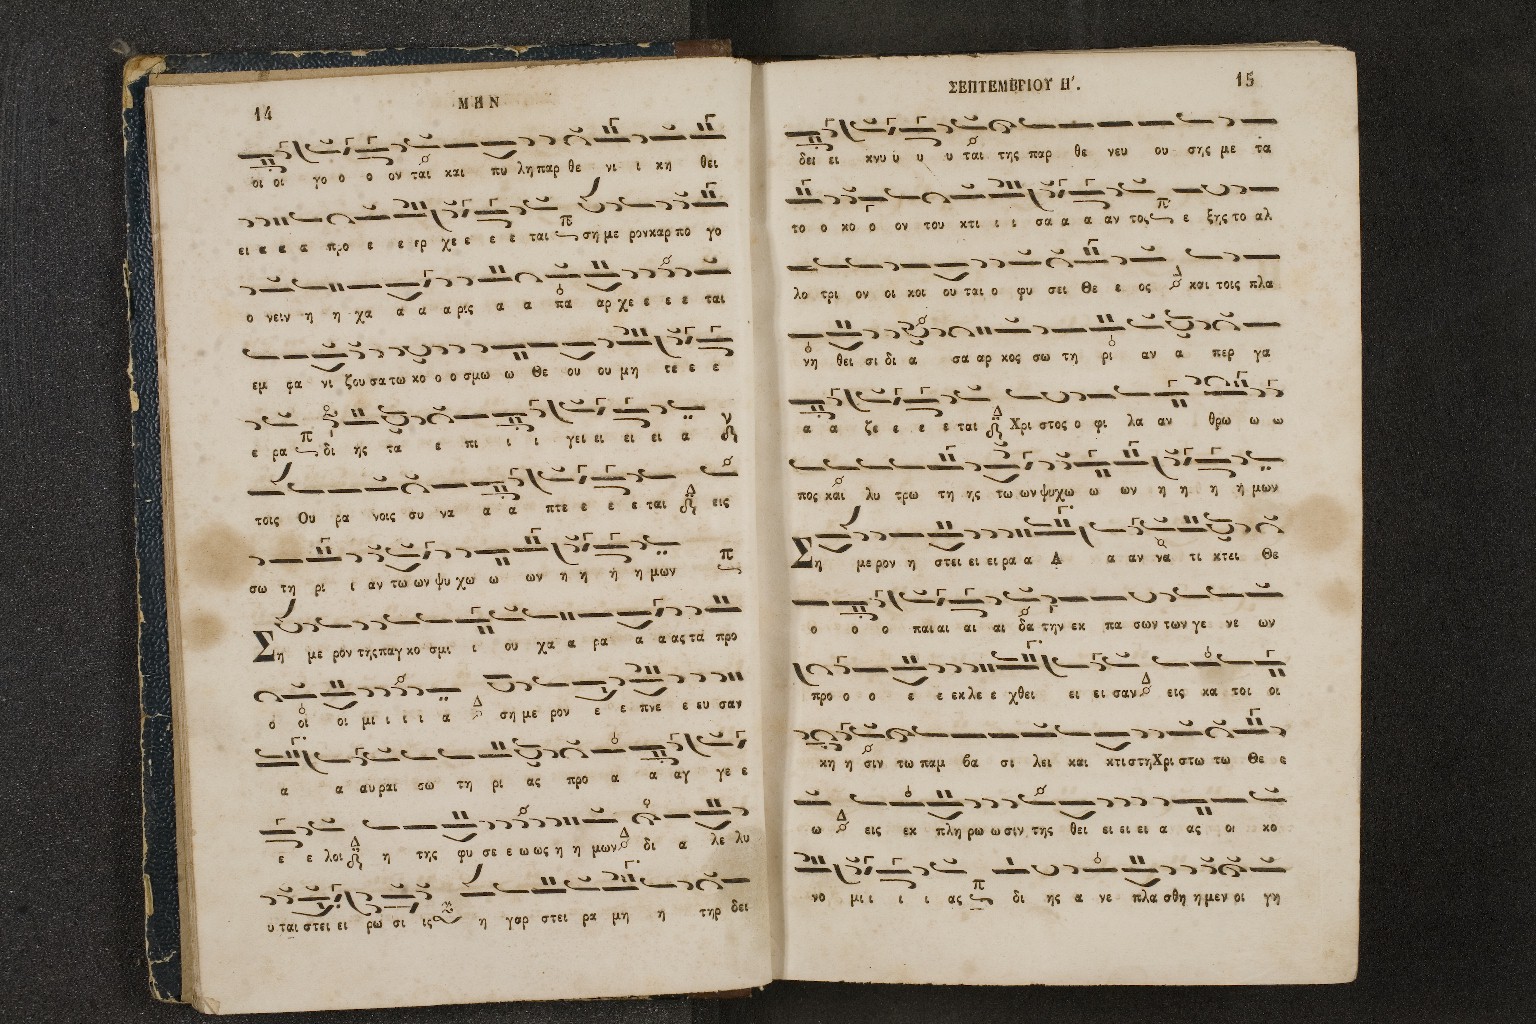 14
ΜΗΝ
οι οι γο ο ο ον ται και πυ λη παρ θε νι ι κη θει
ει α α α προ ε ε ερ χε ε ε ε ται ση με ρον καρ πο γο
ο νειν η η χα α α α ρις α α πα αρ χε ε ε ε ται
εμ φα νι ζου σα τω κο ο ο σμω ω Θε ου ου μη τε ε ε
ε ρα δι ης τα ε πι ι ι γει ει ει ει α
τοις Ου ρα νοις συ να α α πτε ε ε ε ται εις
σω τη ρι ι αν τω ων ψυ χω ω ων η η ή η μων
Ση με ρον της παγ κο σμι ι ου χα α ρα α α ας τα προ
ο οι οι μι ι ι ι α ση με ρον ε ε πνε ε ευ σαν
α α αυ ραι σω τη ρι ας προ α α αγ γε ε
ε ε λοι η της φυ σε ε ω ως η η μων δι α λε λυ
υ ται στει ει ρω σι ις η γαρ στει ρα μη η τηρ δει
ΣΕΠΤΕΜΒΡΙΟΥ Η΄.
15
δει ει κνυ υ υ υ ται της παρ θε νευ ου σης με τα
το ο κο ο ον του κτι ι ι σα α α αν τος ε ξης το αλ
λο τρι ον οι κοι ου ται ο φυ σει Θε ε ος και τοις πλα
νη θει σι δι α σα αρ κος σω τη ρι αν α περ γα
α α ζε ε ε ε ται Χρι στος ο φι λα αν θρω ω ω
πος και λυ τρω τη ης τω ων ψυχω ω ων η η η ή μων
Ση με ρον η στει ει ει ρα α Α α αν να τι κτει Θε
ο ο ο παι αι αι αι δα την εκ πα σων των γε νε ων
προ ο ο ε ε εκ λε ε χθει ει ει σαν εις κα τοι οι
κη η σιν τω παμ βα σι λει και κτι στη Χρι στω τω Θε ε
ω εις εκ πλη ρω ω σιν της θει ει ει ει α ας οι κο
νο μι ι ι ι ας δι ης α νε πλα σθη η μεν οι γη